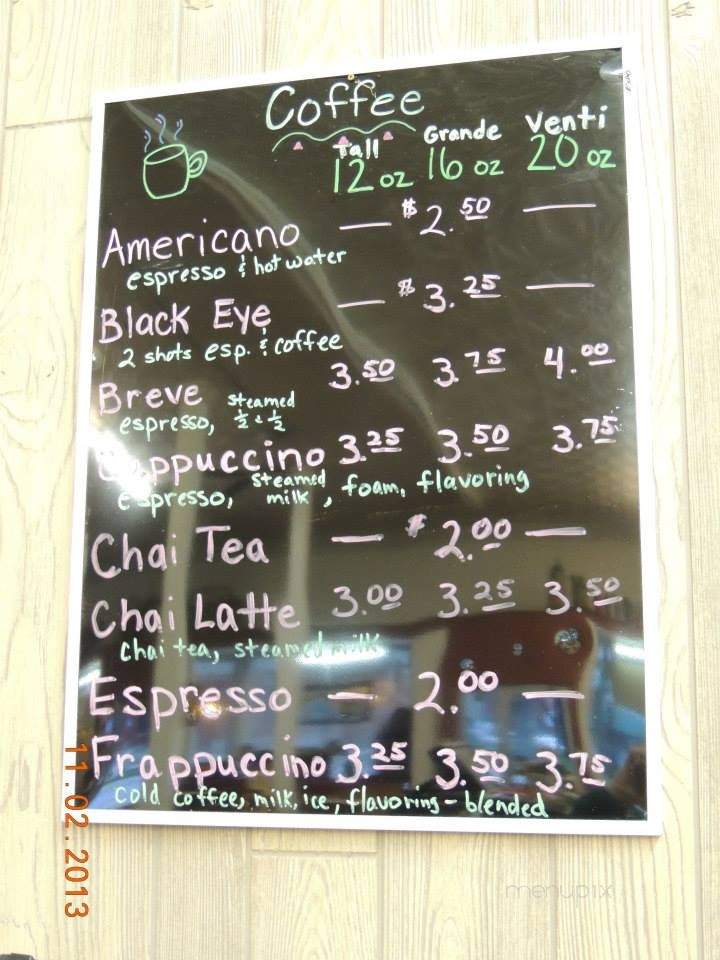 Coffee
Tall Grande Venti
12 oz 16 oz 20 oz
Americano — $2.50 —
espresso & hot water
Black Eye — $3.25 —
2 shots esp. & coffee
Breve 3.50 3.75 4.00
espresso, steamed ½ & ½
Cappuccino 3.25 3.50 3.75
espresso, steamed milk, foam, flavoring
Chai Tea — $2.00 —
Chai Latte 3.00 3.25 3.50
chai tea, steamed milk
Espresso — 2.00 —
Frappuccino 3.25 3.50 3.75
cold coffee, milk, ice, flavoring - blended
11.02.2013
menupix